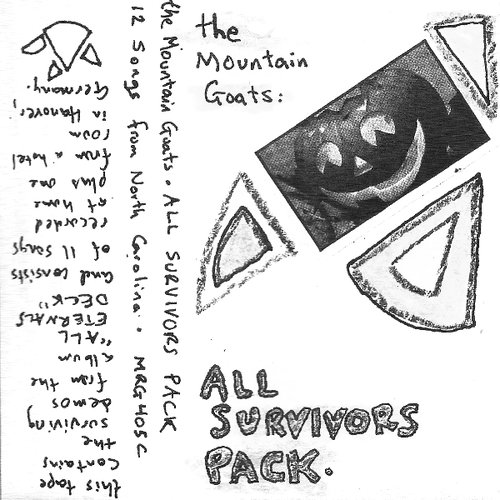 the
Mountain
Goats:
ALL
SURVIVORS
PACK.
the Mountain Goats. ALL SURVIVORS PACK
12 Songs from North Carolina. MRG405C
this tape
contains
the
surviving
demos
from the
album
"ALL
ETERNALS
DECK"
and consists
of 11 songs
recorded
at home
plus one
from a hotel
room
in Hanover,
Germany.